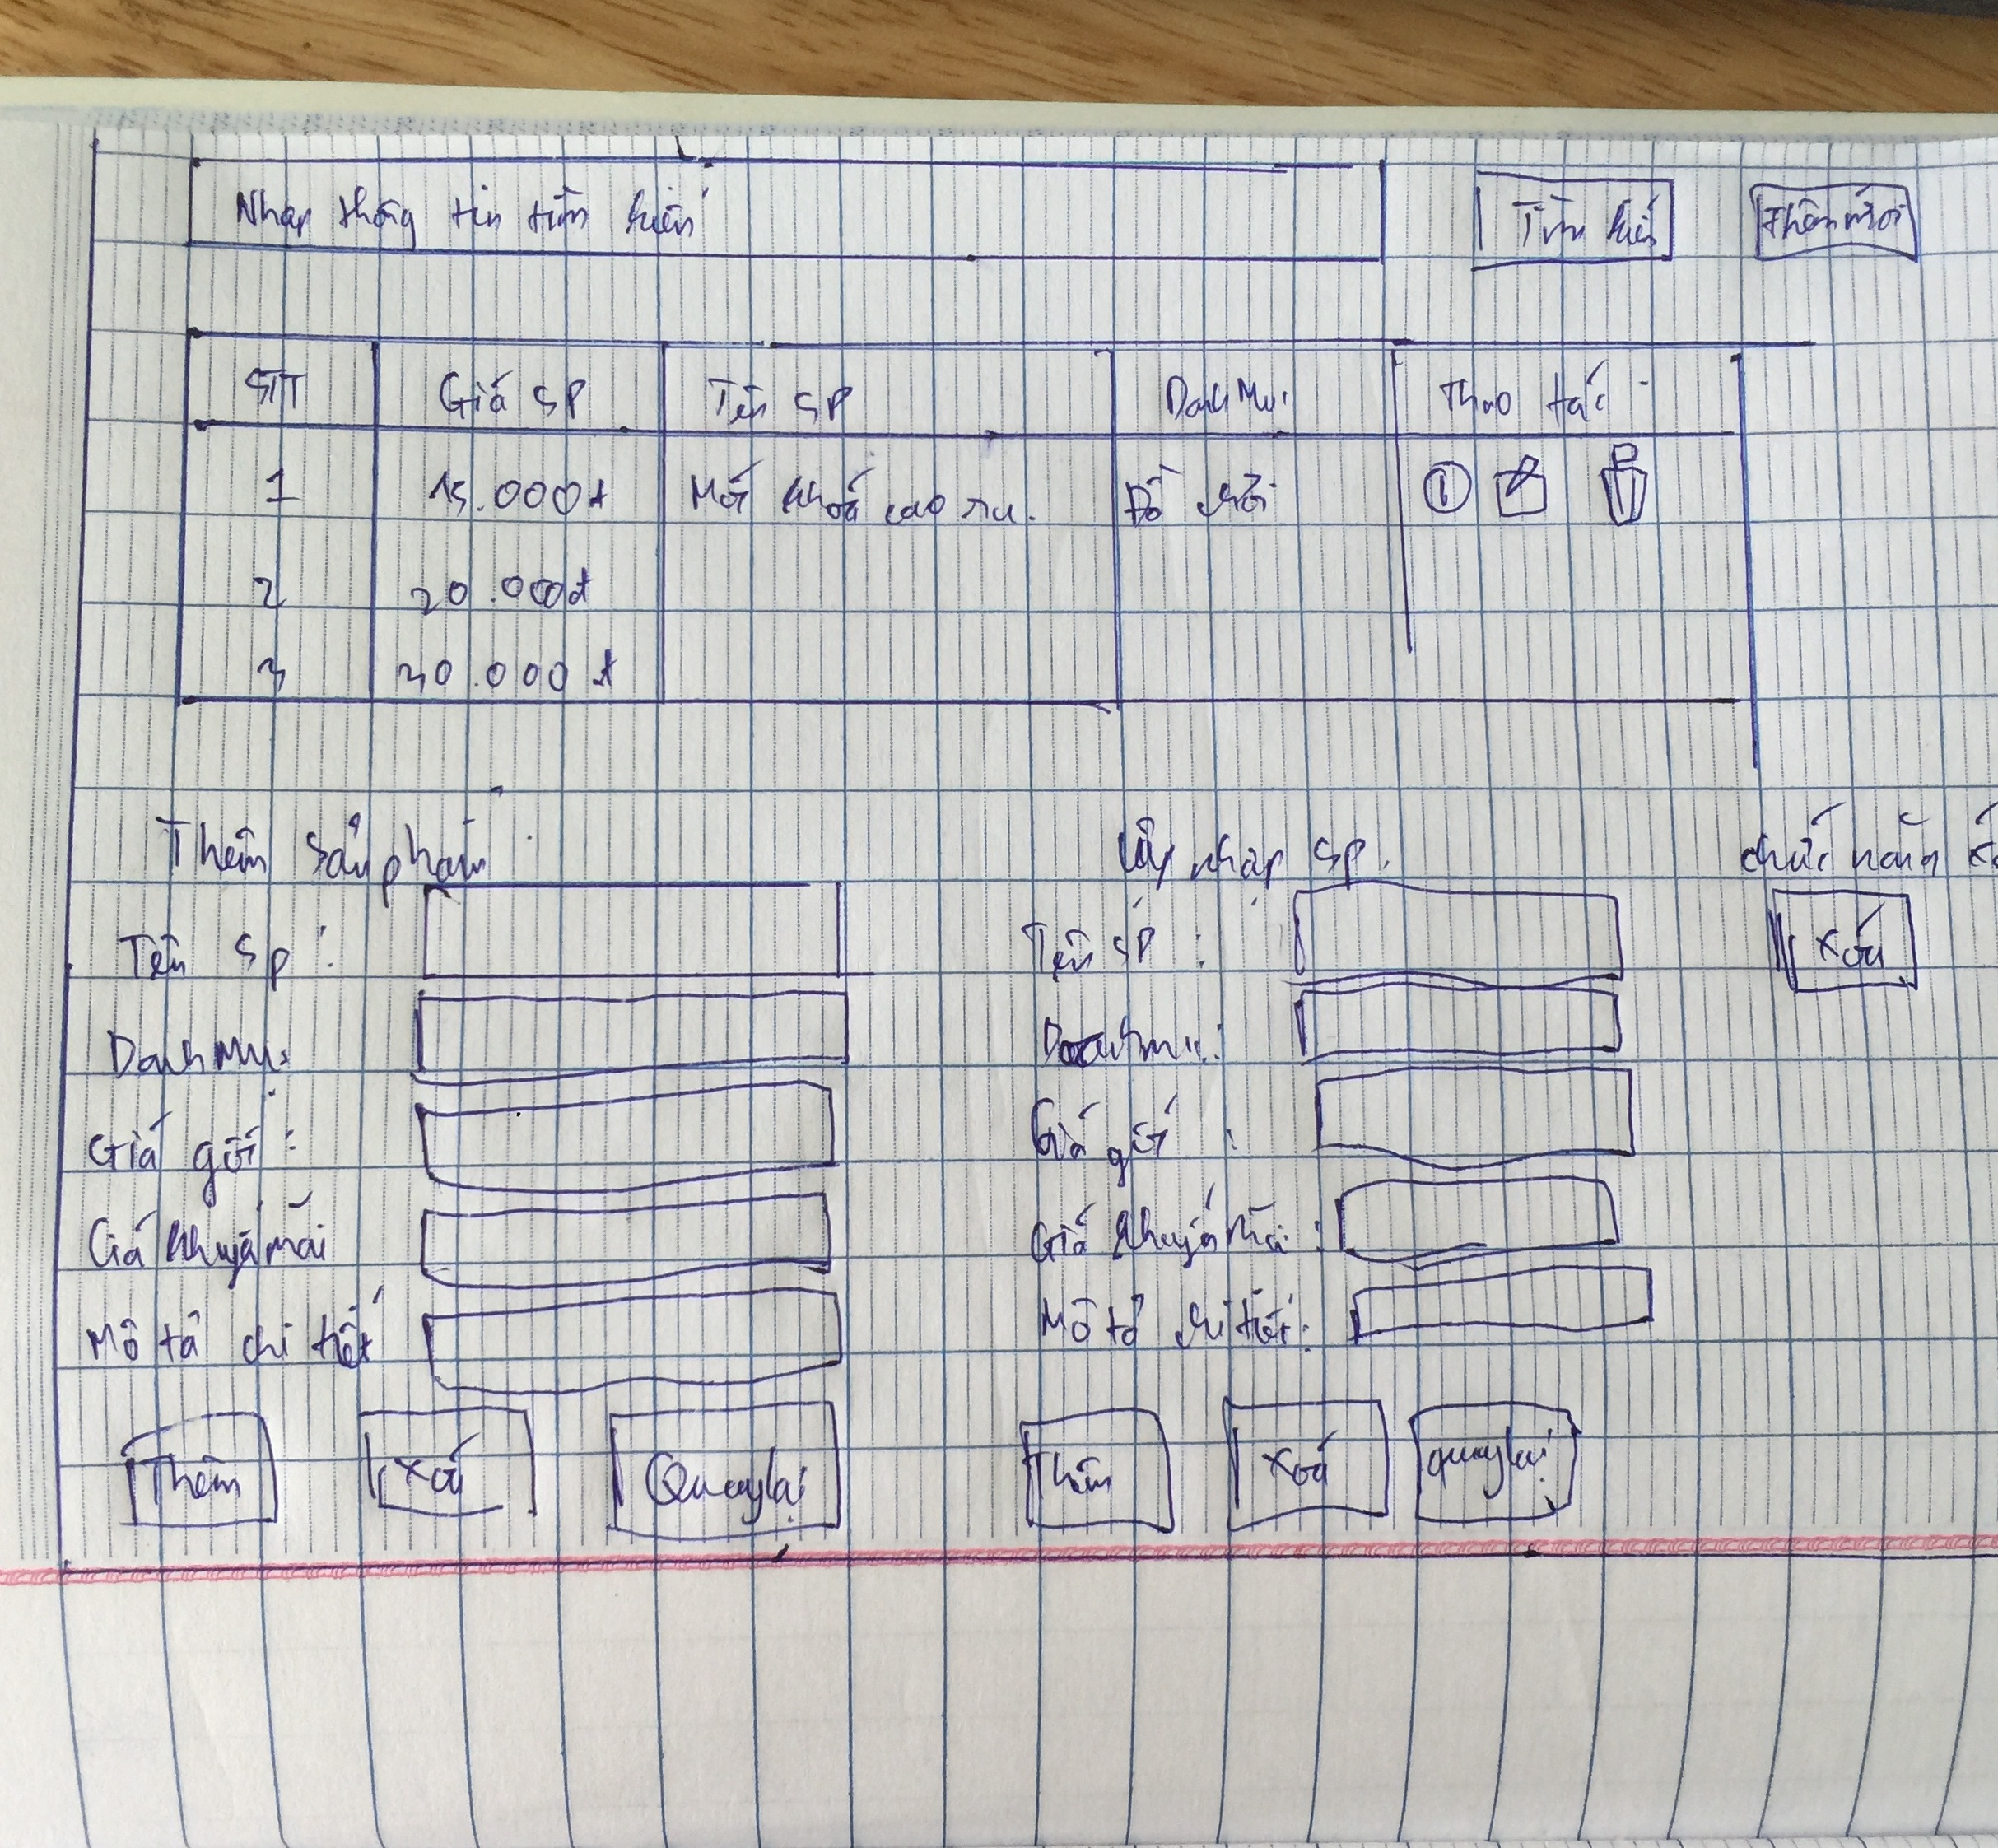 Nhập thông tin tìm kiếm
Tìm kiếm
Thêm mới
STT Giá SP Tên SP Danh Mục Thao tác
1 15.000đ Móc khoá cao su. Đồ chơi
2 20.000đ
3 30.000đ
Thêm sản phẩm
Tên Sp :
Danh Mục
Giá gốc :
Giá khuyến mãi
Mô tả chi tiết
Thêm Xoá Quay lại
nhập SP.
Tên SP :
Danh mục :
Giá gốc :
Giá khuyến mãi :
Mô tả chi tiết :
Thêm Xoá quay lại
chức năng
Xoá